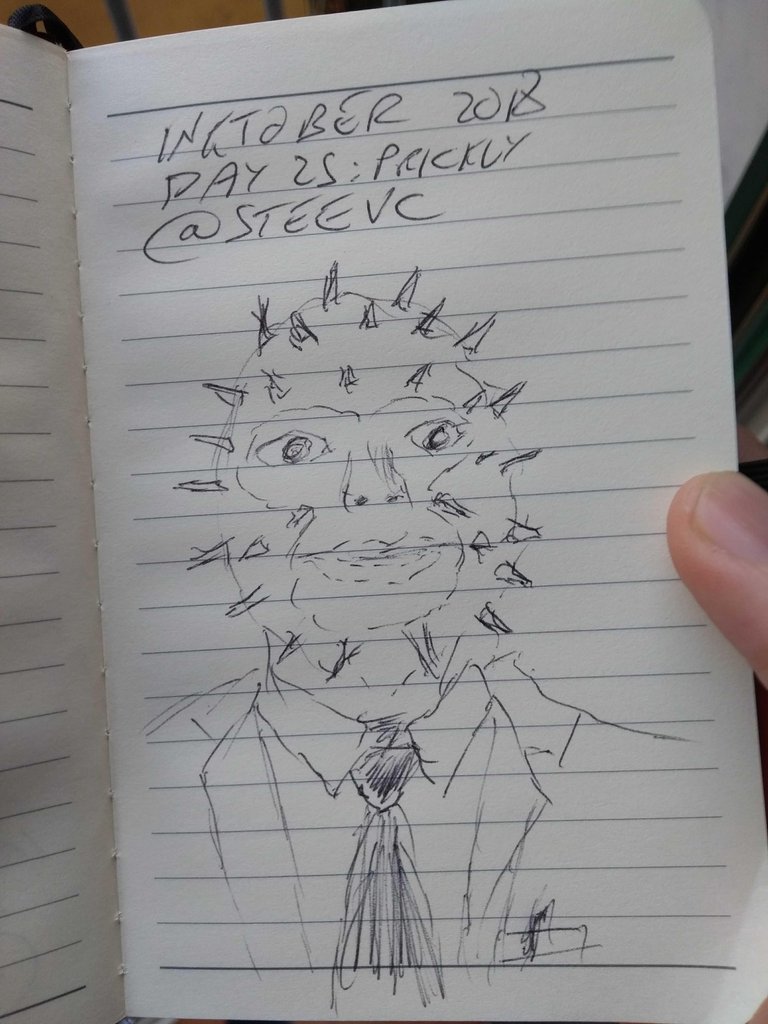 INKTOBER 2018
DAY 25: PRICKLY
@STEEVC